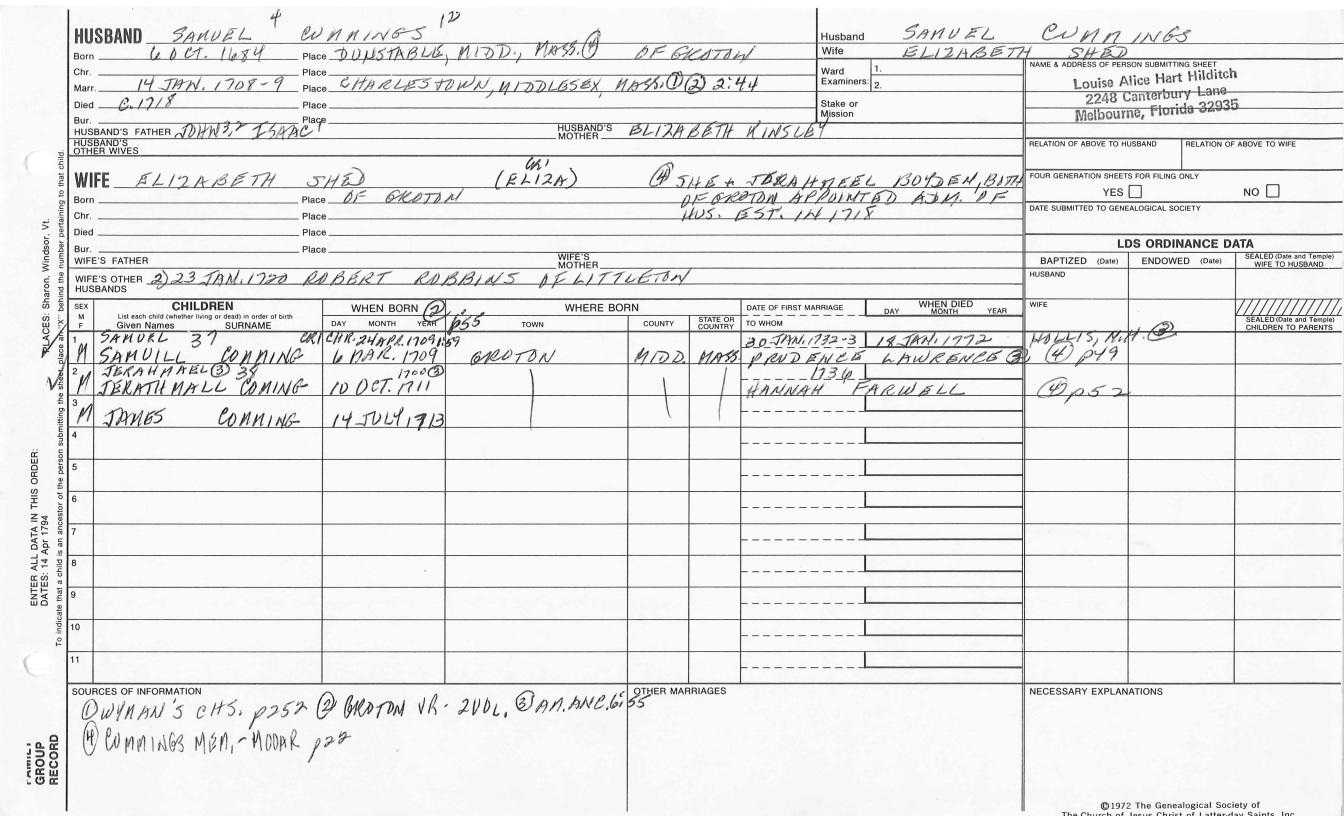 4 12
HUSBAND SAMUEL CUMMINGS
Born 6 OCT. 1684 Place DUNSTABLE, MIDD., MASS. (4) OF GROTON
Chr. Place
Marr. 14 JAN. 1708-9 Place CHARLESTOWN, MIDDLESEX, MASS. (1) (2) 2:44
Died C. 1718 Place
Bur. Place
HUSBAND'S FATHER JOHN 3,2 ISAAC 1 HUSBAND'S MOTHER ELIZABETH KINSLEY
HUSBAND'S OTHER WIVES
Husband SAMUEL CUMMINGS
Wife ELIZABETH SHED
Ward Examiners: 1.
2.
Stake or Mission
NAME & ADDRESS OF PERSON SUBMITTING SHEET
Louise Alice Hart Hilditch
2248 Canterbury Lane
Melbourne, Florida 32935
RELATION OF ABOVE TO HUSBAND RELATION OF ABOVE TO WIFE
FOUR GENERATION SHEETS FOR FILING ONLY
YES NO
DATE SUBMITTED TO GENEALOGICAL SOCIETY
WIFE ELIZABETH SHED (ELIZA) (4) SHE + JERAHMEEL BOYDEN, BOTH
Born Place OF GROTON OF GROTON APPOINTED ADM. OF
Chr. Place HUS. EST. IN 1718
Died Place
Bur. Place
WIFE'S FATHER WIFE'S MOTHER
WIFE'S OTHER HUSBANDS 2) 23 JAN. 1720 ROBERT ROBBINS OF LITTLETON
LDS ORDINANCE DATA
BAPTIZED (Date) ENDOWED (Date) SEALED (Date and Temple) WIFE TO HUSBAND
HUSBAND
WIFE
SEALED (Date and Temple) CHILDREN TO PARENTS
SEX M F CHILDREN WHEN BORN (2) 6:55 WHERE BORN DATE OF FIRST MARRIAGE WHEN DIED
List each child (whether living or dead) in order of birth
Given Names SURNAME DAY MONTH YEAR TOWN COUNTY STATE OR COUNTRY TO WHOM DAY MONTH YEAR
1 SAMUEL 37 CHR. 24 APR. 1709 1:59 30 JAN. 1732-3 18 JAN. 1772 HOLLIS, N.H. (3)
M SAMUILL COMMING 6 MAR. 1709 GROTON MIDD. MASS PRUDENCE LAWRENCE (3) (4) p49
2 JERAHMAEL (3) 38 1700 (3) 1736
M JERATHMALL COMING 10 OCT. 1711 HANNAH FARWELL (4) p52
3
M JAMES COMMING 14 JULY 1713
4
5
6
7
8
9
10
11
SOURCES OF INFORMATION
(1) WYMAN'S CHS. p252 (2) GROTON VR - 2VOL. (3) AM. ANC. 6:55
(4) CUMMINGS MEM. - MOOAR p22
OTHER MARRIAGES
NECESSARY EXPLANATIONS
©1972 The Genealogical Society of
The Church of Jesus Christ of Latter-day Saints, Inc.
PLACES: Sharon, Windsor, Vt.
To indicate that a child is an ancestor of the person submitting the sheet, place an "X" behind the number pertaining to that child.
ENTER ALL DATA IN THIS ORDER:
DATES: 14 Apr 1794
FAMILY GROUP RECORD